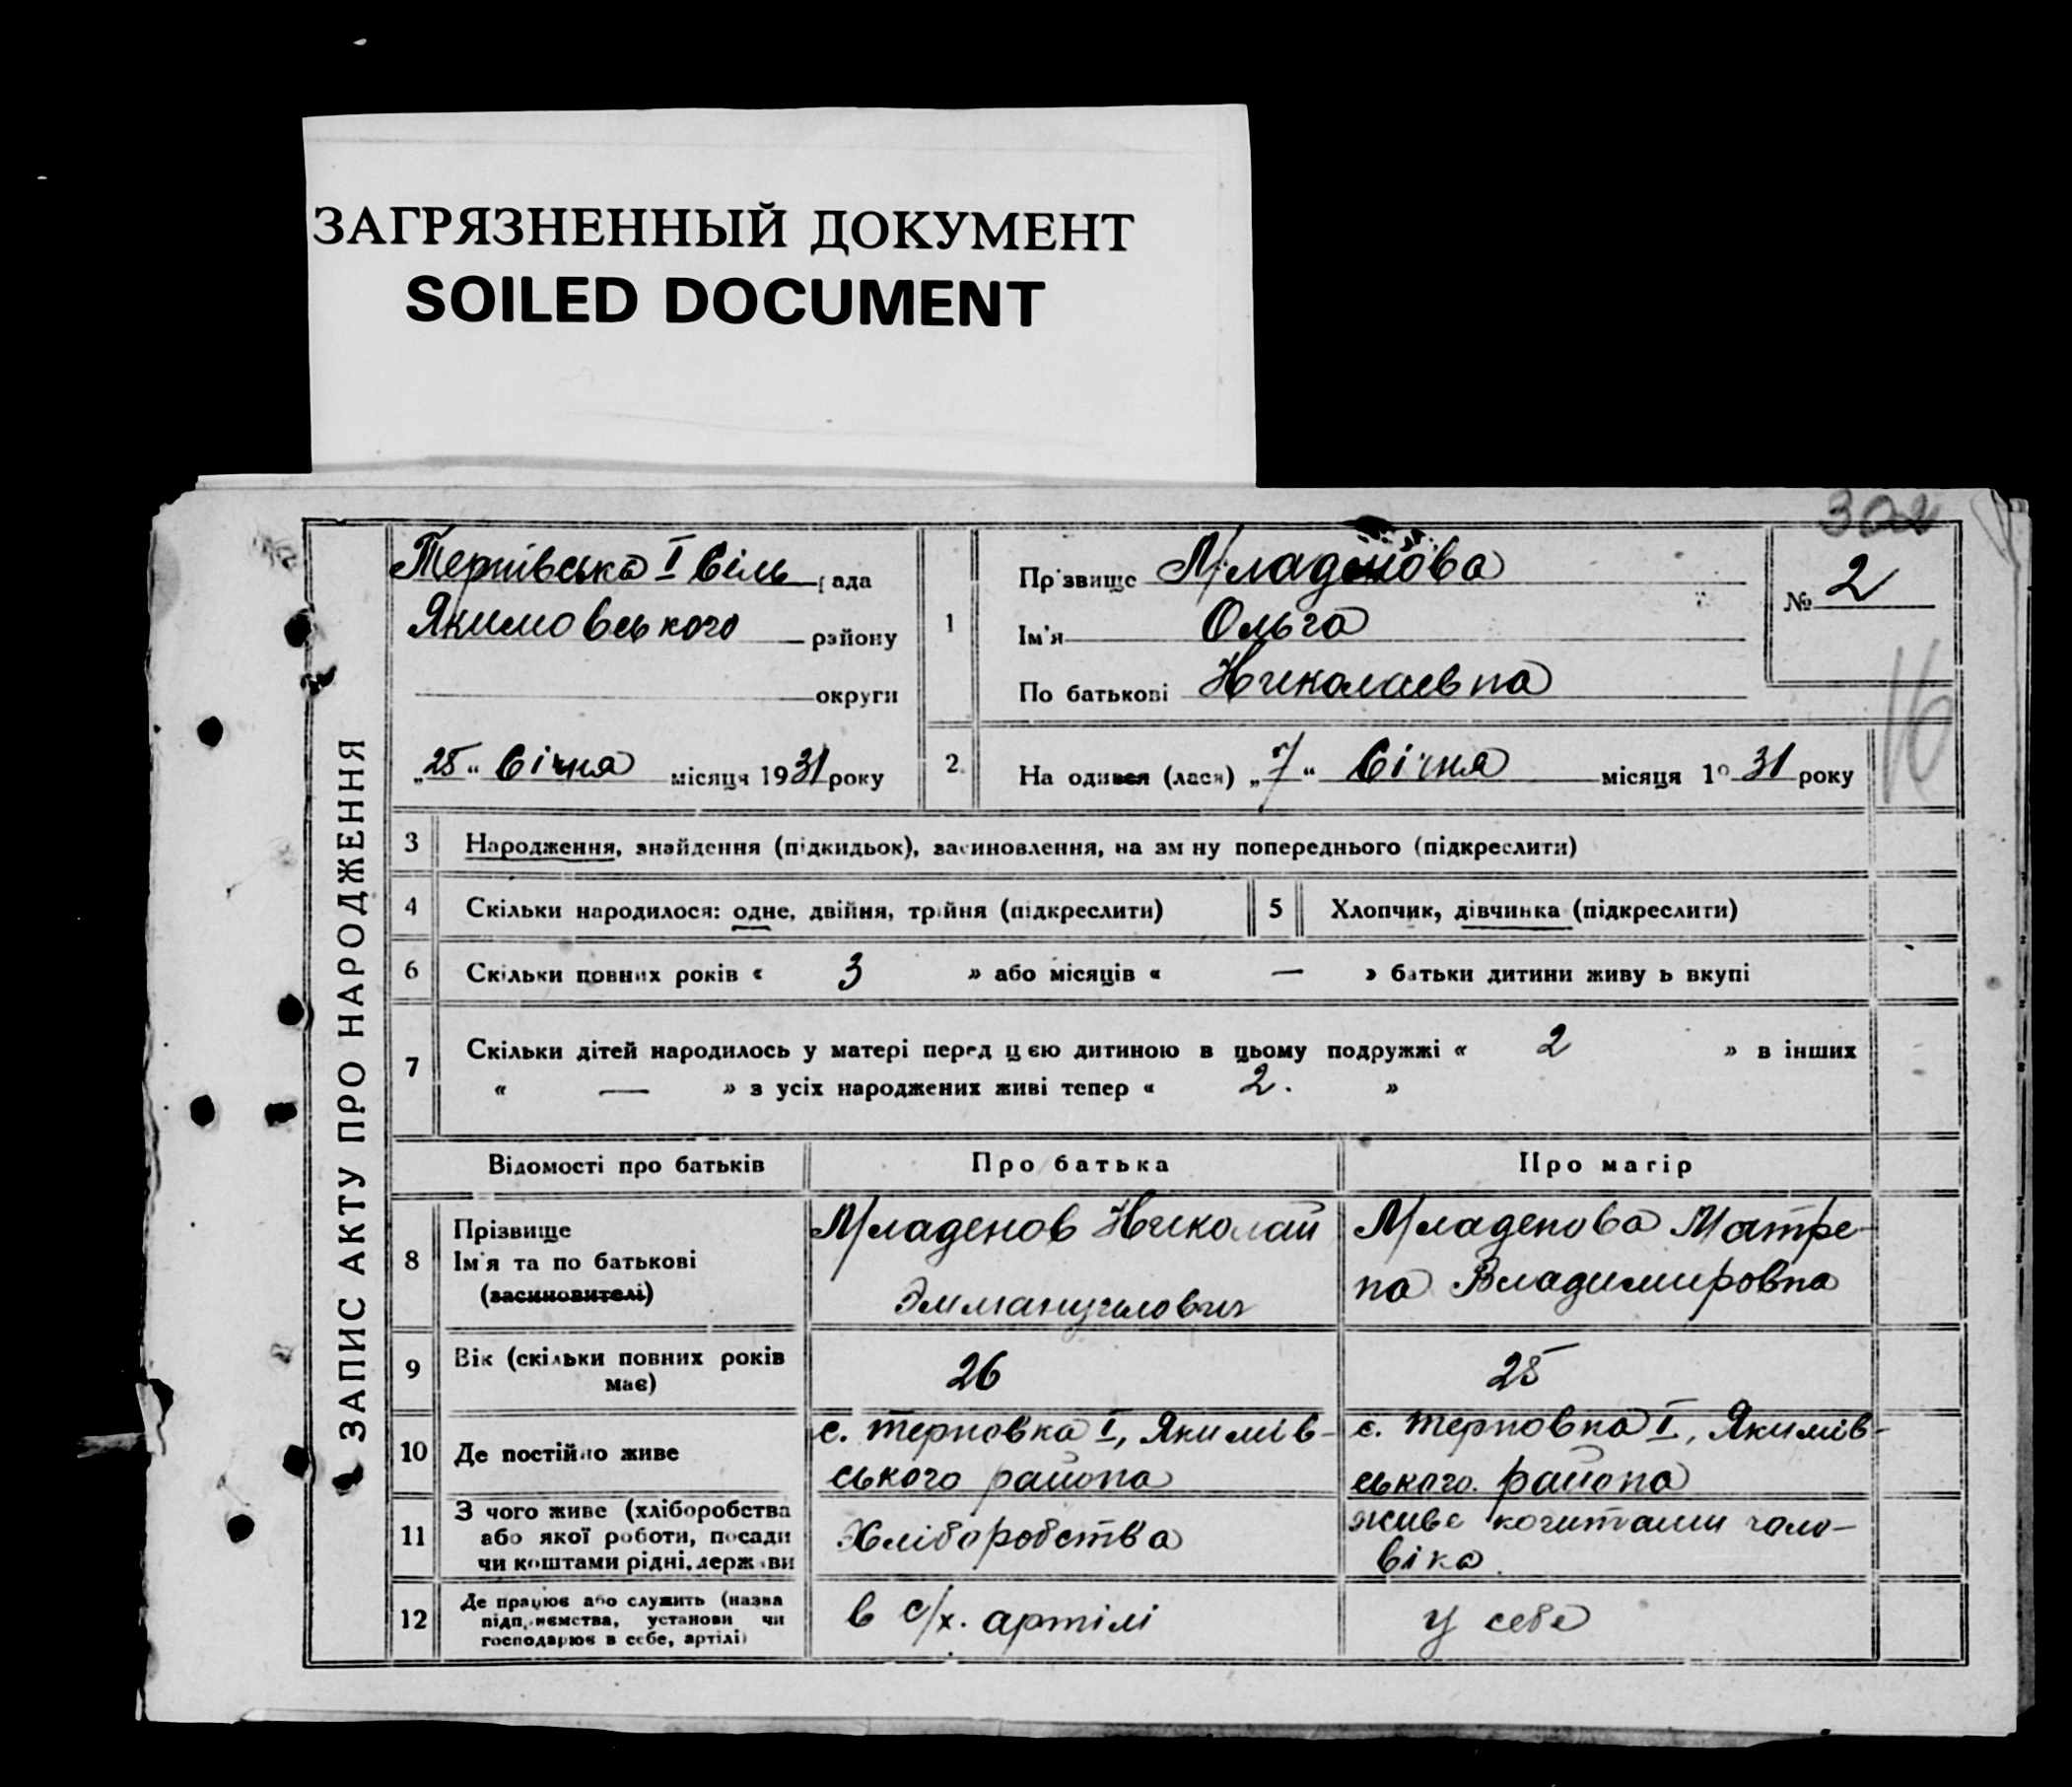 ЗАГРЯЗНЕННЫЙ ДОКУМЕНТ
SOILED DOCUMENT
302
ЗАПИС АКТУ ПРО НАРОДЖЕННЯ
Тернівська I сіль рада
Якимовського району
округи
„25“ Січня місяця 1931 року
1
Прізвище Младенова
Ім'я Ольга
По батькові Николаевна
№ 2
16
2 На одився (лася) „7“ Січня місяця 19 31 року
3 Народження, знайдення (підкидьок), засиновлення, на зм ну попереднього (підкреслити)
4 Скільки народилося: одне, двійня, трійня (підкреслити) 5 Хлопчик, дівчинка (підкреслити)
6 Скільки повних років « 3 » або місяців « — » батьки дитини живу ь вкупі
7 Скільки дітей народилось у матері перед цією дитиною в цьому подружжі « 2 » в інших
« — » з усіх народжених живі тепер « 2. »
Відомості про батьків Про батька Про матір
8 Прізвище
Ім'я та по батькові
(засиновителі)
Младенов Николай
Эммануилович
Младенова Матре-
на Владимировна
9 Вік (скільки повних років
має)
26
25
10 Де постійно живе
с. Терновка I, Якимів-
ського района
с. Терновка I, Якимів-
ського района
11 З чого живе (хліборобства
або якої роботи, посади
чи коштами рідні, держави
Хліборобства
живе коштами чоло-
віка.
12 Де працює або служить (назва
підприємства, установи чи
господарює в себе, артілі)
в с/х. артілі
у себе